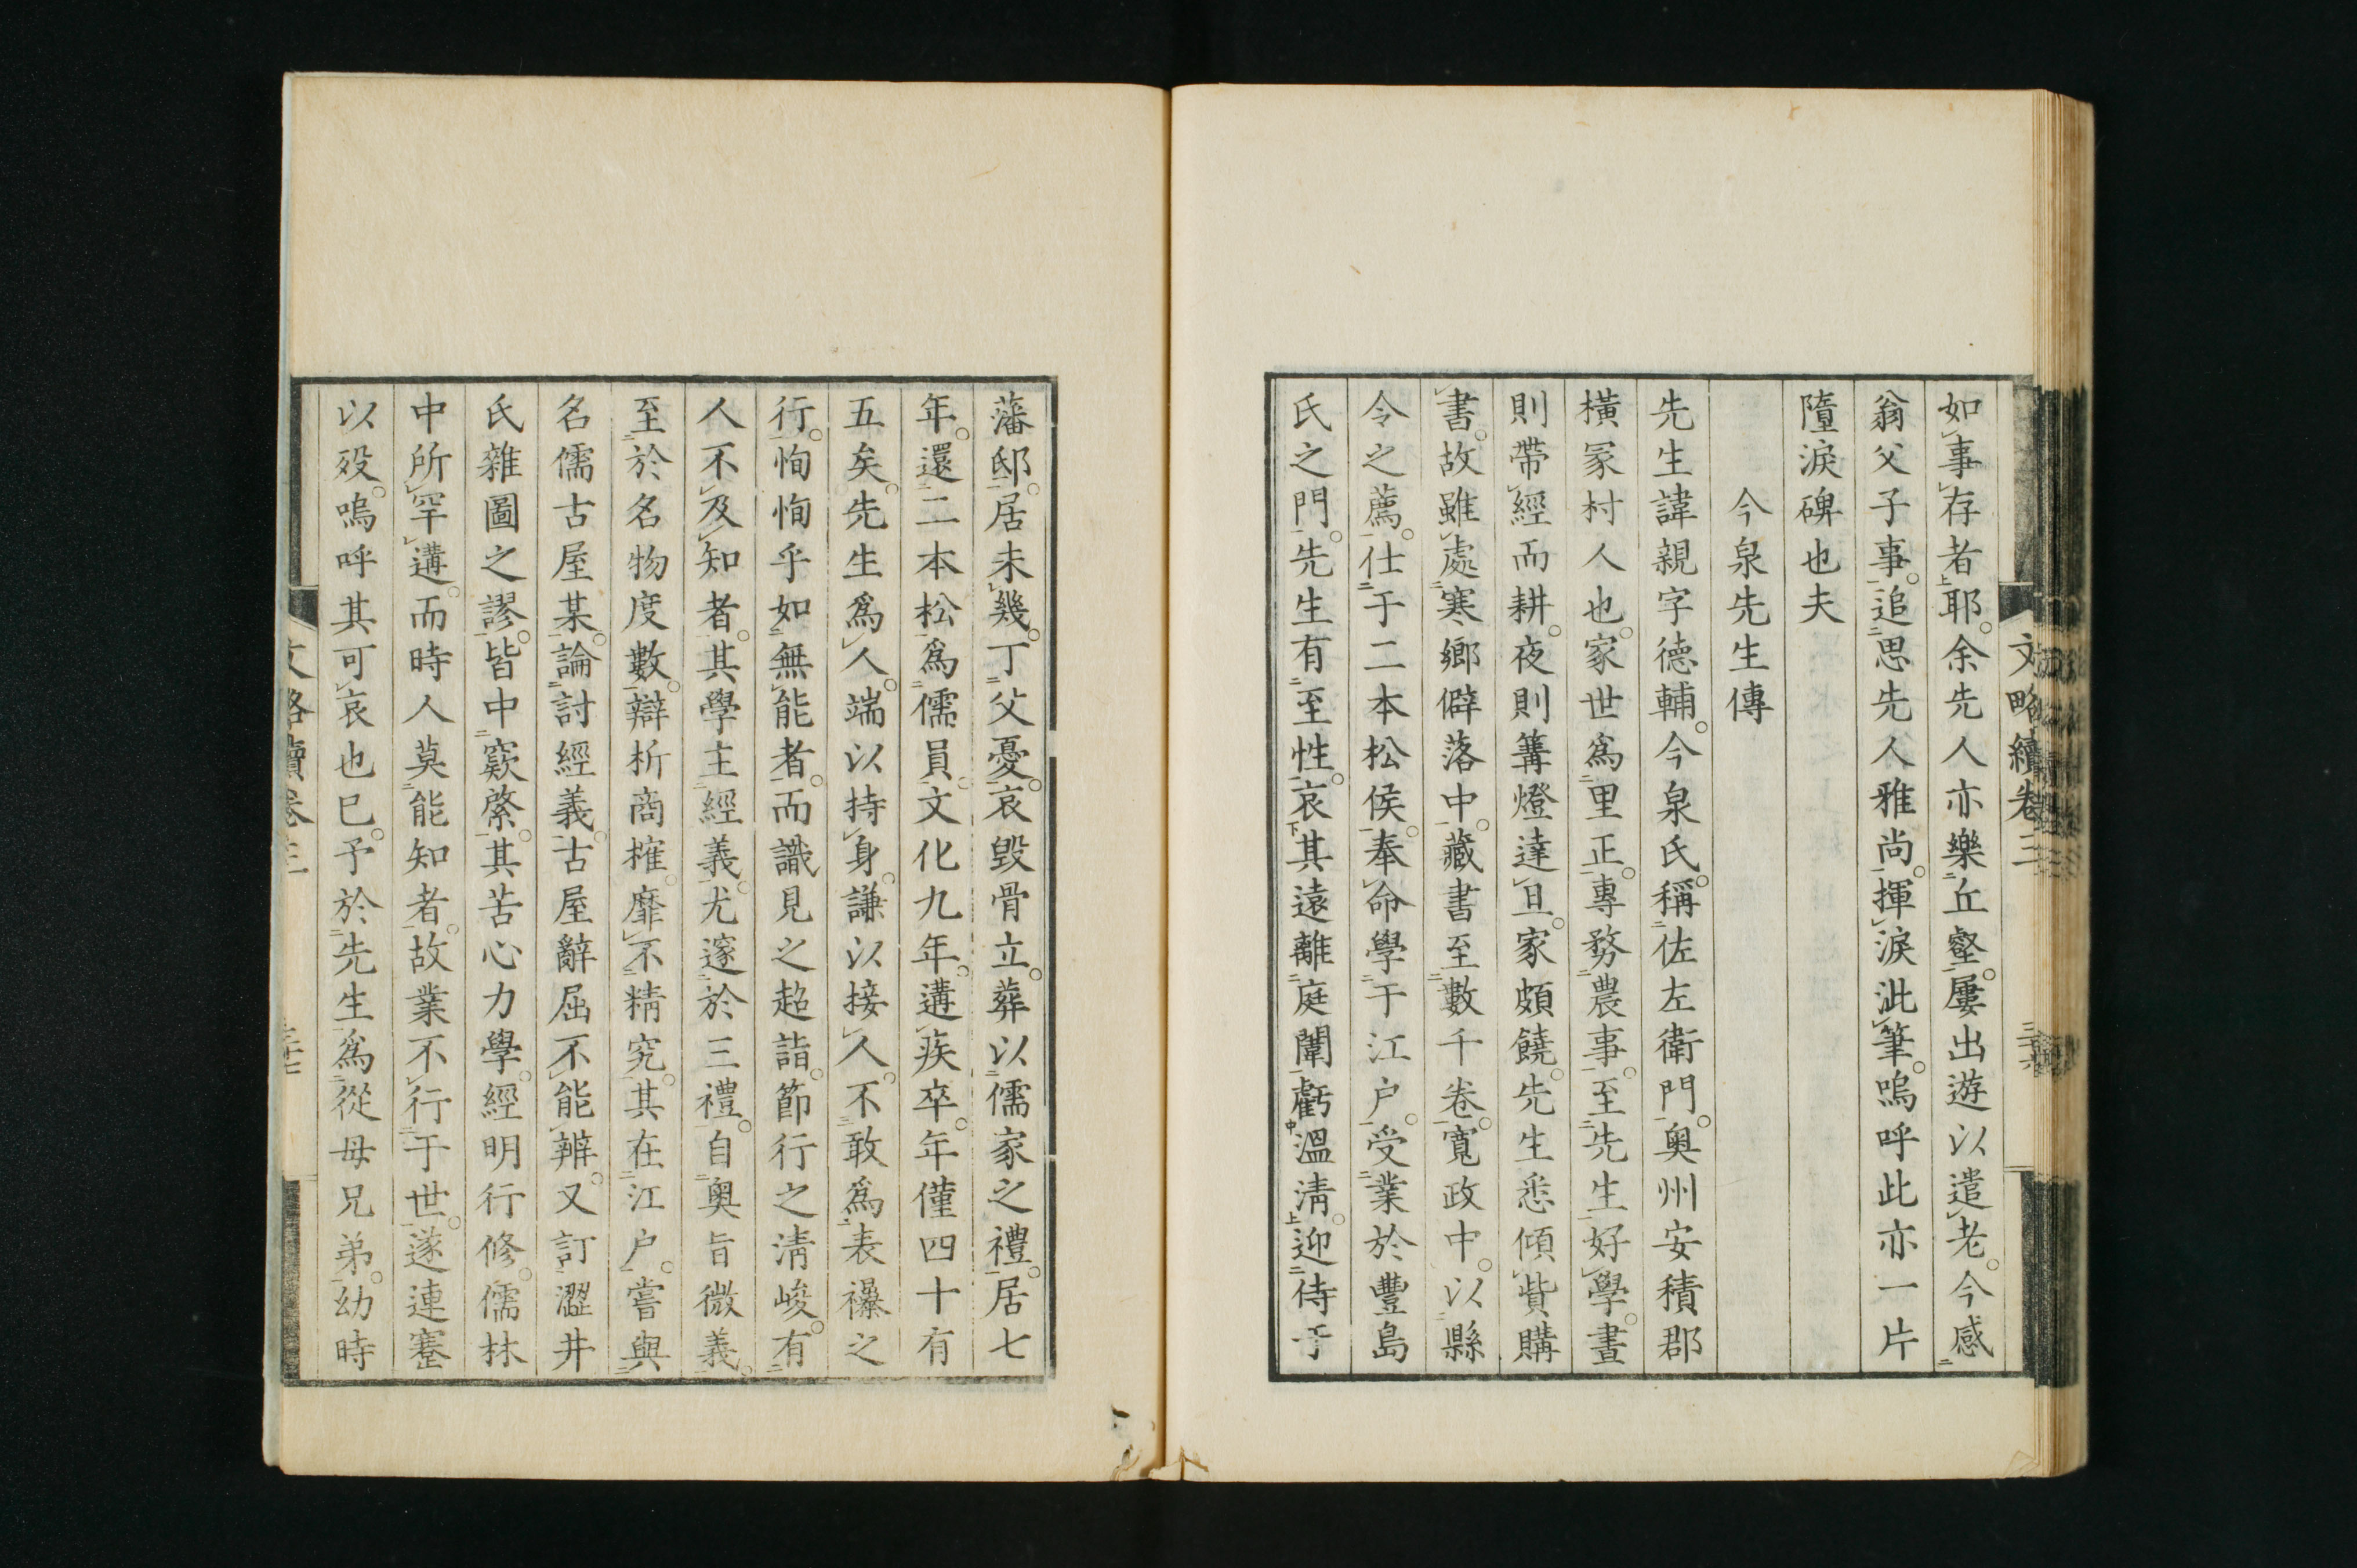 文略續卷三
如事存者耶。余先人亦樂丘壑。屢出遊以遣老。今感
翁父子事。追思先人雅尚。揮淚泚筆。嗚呼此亦一片
墮淚碑也夫
今泉先生傳
先生諱親字德輔。今泉氏。稱佐左衛門。奧州安積郡
橫冢村人也。家世爲里正。專務農事。至先生好學。晝
則帶經而耕。夜則篝燈達旦。家頗饒。先生悉傾貲購
書。故雖處寒鄉僻落中。藏書至數千卷。寬政中。以縣
令之薦。仕于二本松侯。奉命學于江户。受業於豐島
氏之門。先生有至性。哀其遠離庭闈虧溫淸。迎侍于
藩邸。居未幾。丁父憂。哀毀骨立。葬以儒家之禮。居七
年。還二本松爲儒員。文化九年。遘疾卒。年僅四十有
五矣。先生爲人。端以持身。謙以接人。不敢爲表襮之
行。恂恂乎如無能者。而識見之超詣。節行之淸峻。有
人不及知者。其學主經義。尤邃於三禮。自奧旨微義。
至於名物度數。辯析商搉。靡不精究。其在江户。嘗與
名儒古屋某。論討經義。古屋辭屈不能辨。又訂澀井
氏雜圖之謬。皆中窾綮。其苦心力學。經明行修。儒林
中所罕遘。而時人莫能知者。故業不行于世。遂連蹇
以歿。嗚呼其可哀也已。予於先生爲從母兄弟。幼時
文略續卷三
三十七